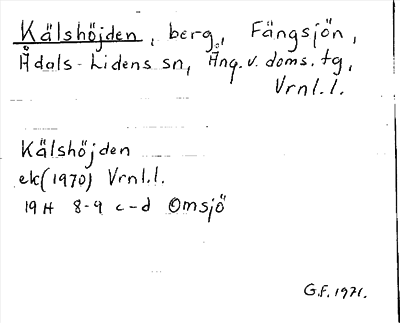 Kälshöjden, berg, Fängsjön,
Ådals-Lidens sn, Ång. v. doms. tg,
Vrnl.l.
Kälshöjden
ek(1970) Vrnl.l.
19H 8-9 c-d Omsjö
G.F. 1971.